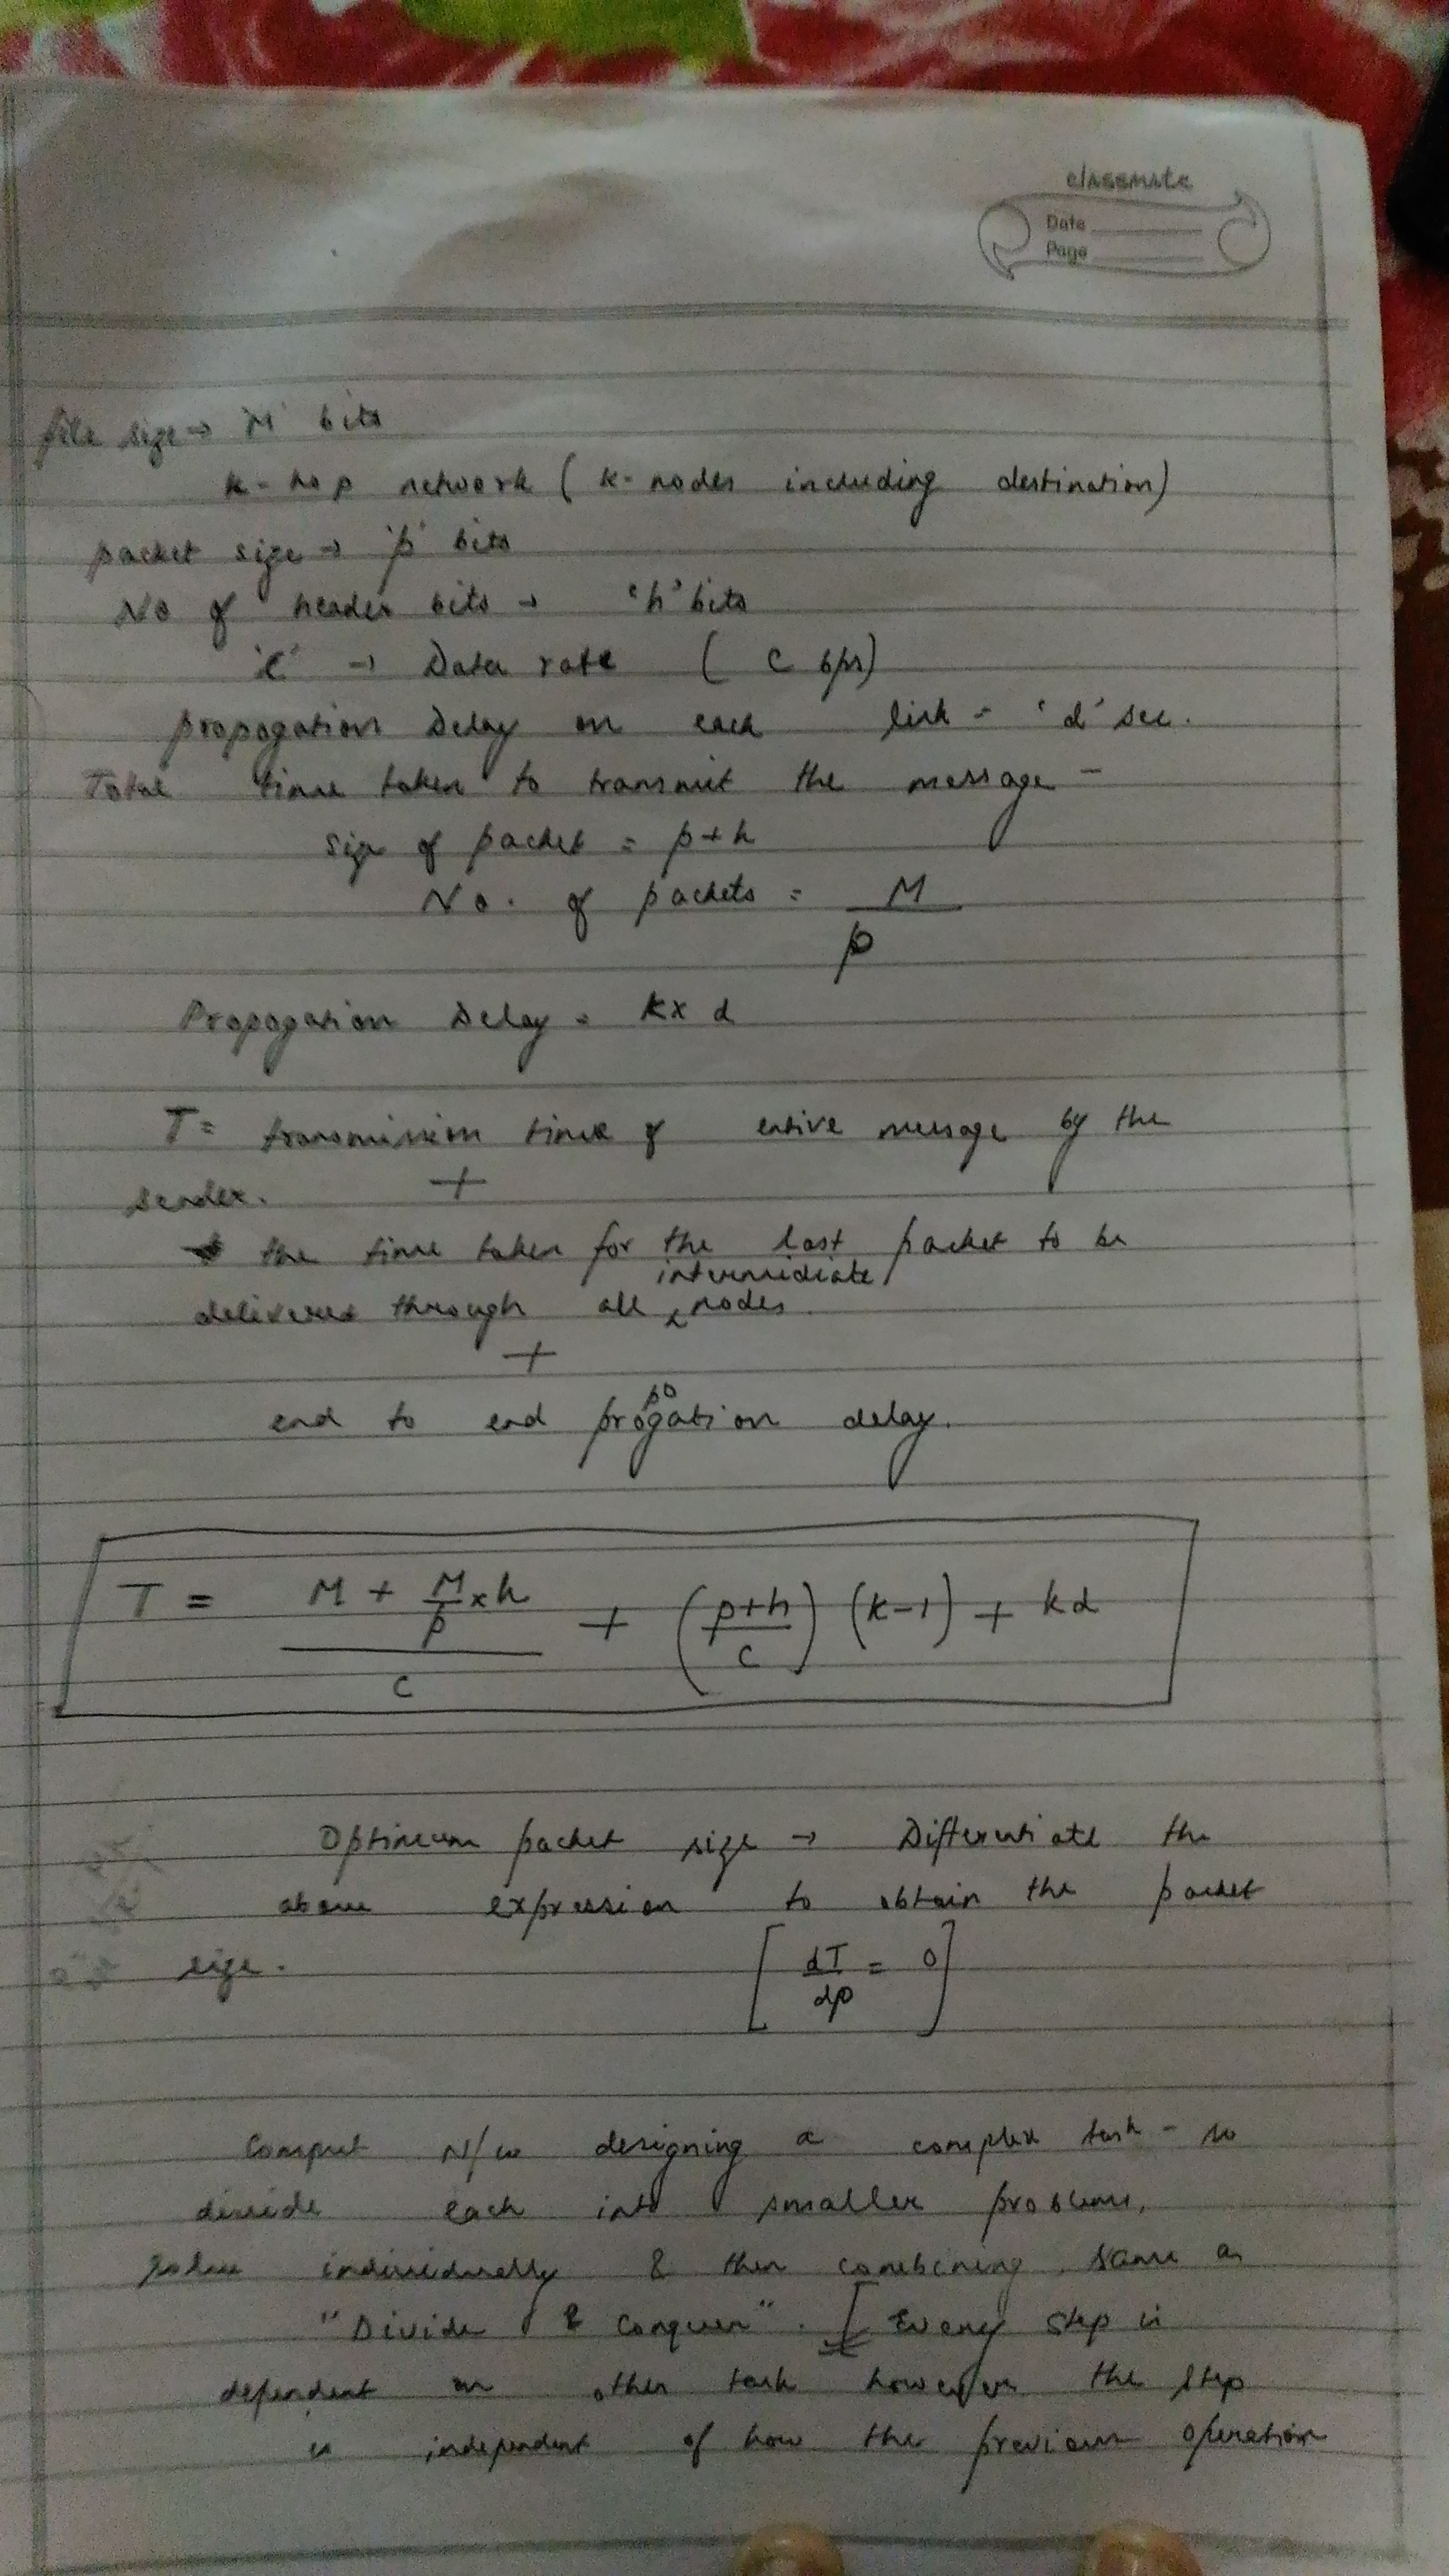 classmate
Date
Page
file size → 'M' bits
k-hop network ( k-nodes including destination)
packet size → 'p' bits
No of header bits → 'h' bits
'c' → Data rate ( C bps)
propogation Delay on each link = 'd' sec.
Total time taken to transmit the message -
size of packet = p+h
No. of packets = M
p
Propogation Delay = k x d
T = transmission time of entire message by the
sender. +
the time taken for the last packet to be
intermidiate
delivered through all nodes.
+
po
end to end progation delay.
T = M + M/p x h / c + (p+h / c) (k-1) + kd
Optimum packet size → Differentiate the
above expression to obtain the packet
size. [ dT/dp = 0 ]
Comput N/w designing a complex task - so
divide each into smaller problems,
solve individually & then combining same as
"Divide & Conquer". [ Every step is
dependent on other task however the step
is independent of how the previous operation